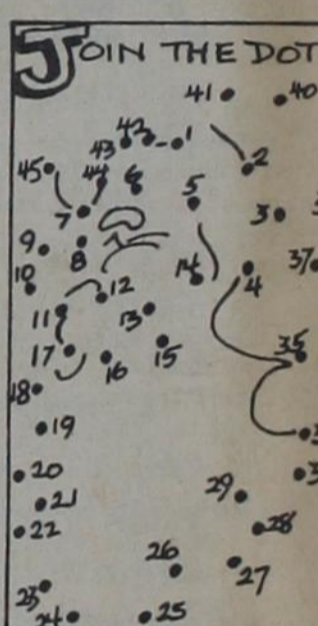 JOIN THE DOT
41 40
42 1
43
45 44 6 2
5
7 3
9 8
10 14 4 37
12
11 13
17 16 15 35
18
19
20 29
21
22 28
26
27
23
24 25